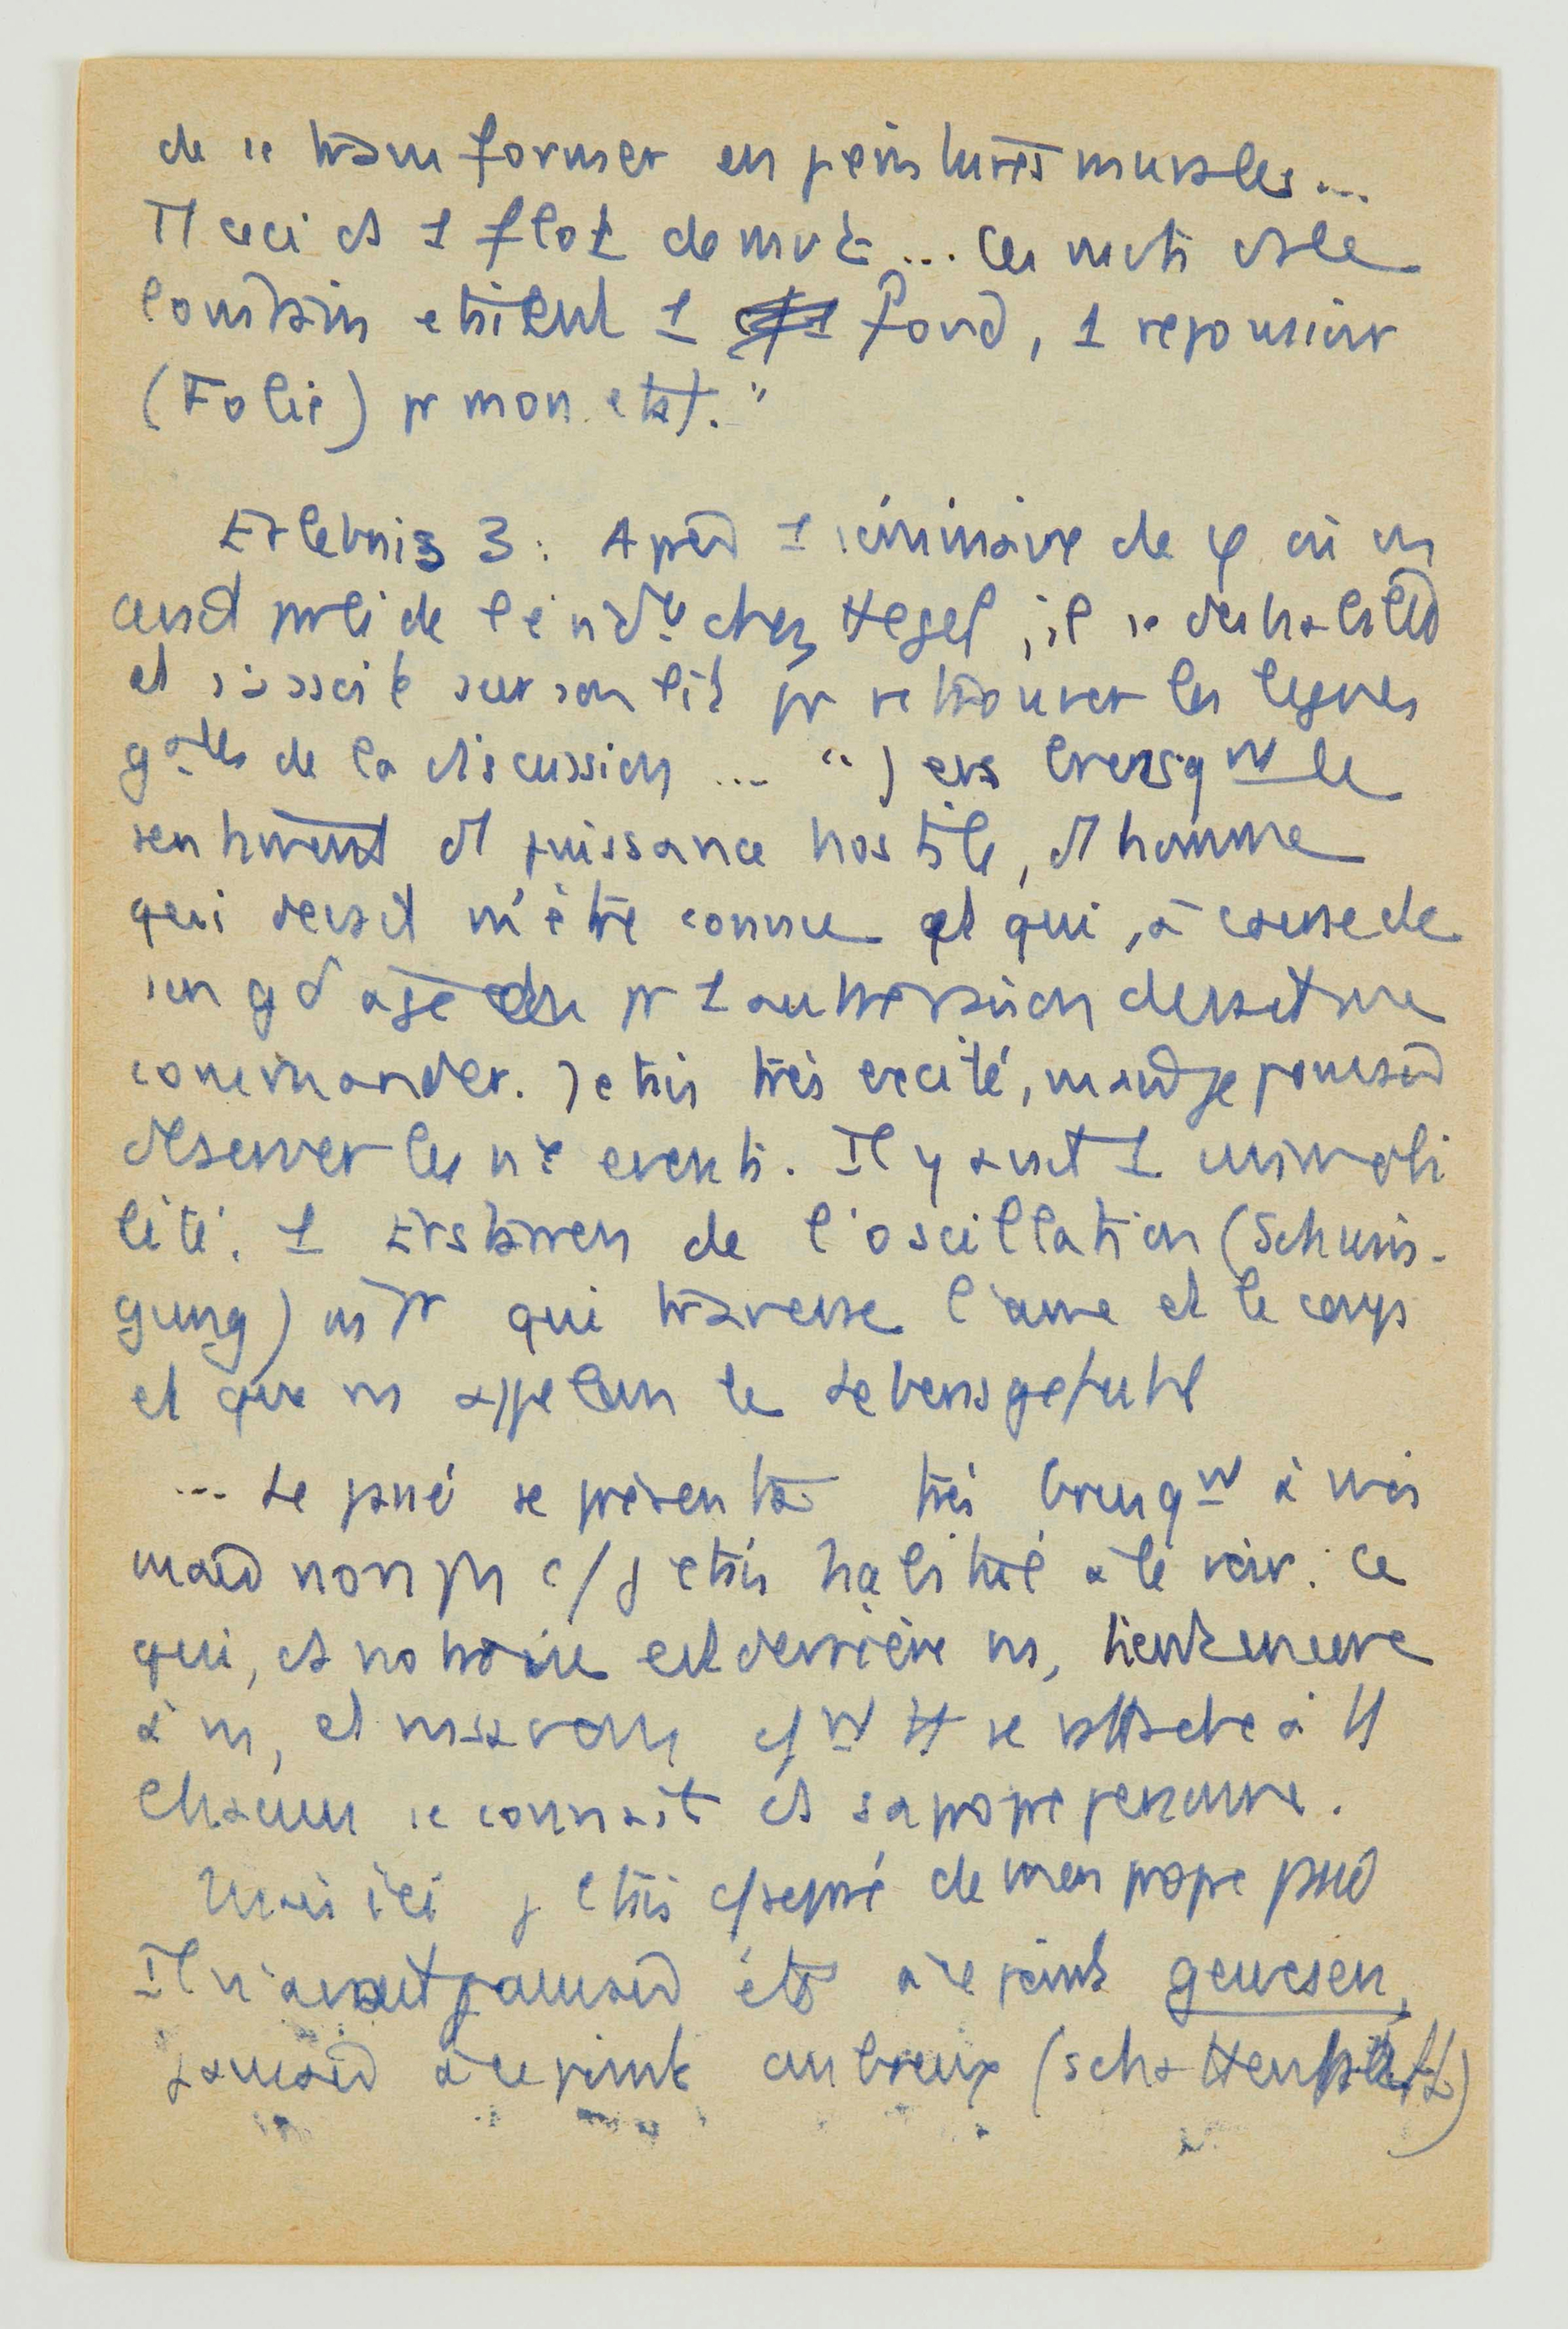 de se transformer en peintures murales...
Tt ceci ds 1 flot de mvt... Ces mvts ds le
lointain etaient 1 fond, 1 repoussoir
(Folie) pr mon etat."
Erlebnis 3 : Après 1 séminaire de φ où on
avait parlé de chez Hegel, il se deshabillait
et s'assoit sur son lit pr retrouver les lignes
gales de la discussion ... " J'eus brusqt le
sentiment d'1 puissance hostile, d'1 homme
qui devait m'être connu et qui, à cause de
son gd age ou pr 1 autre raison devait me
commander. J'etais très excité, mais je pouvais
observer les evets. Il y avait 1 immobi
lité, 1 Erstarren de l'oscillation (Schwin-
gung) qui traverse l'ame et le corps
et que ns appelons le Lebensgefuhl
... Le passé se présenta très brusqt à moi
mais non pas c/ j'etais habitué à le voir. Ce
qui, ds notre vie est derrière ns, tient encore
à ns, et ns savons c/mt tt se rattache à tt
Chacun se connait ds sa propre personne.
Mais ici j'etais c/ séparé de mon propre passé
Il n'avait jamais été à ce point gewesen,
jamais à ce point ombreux (schattenhaft)